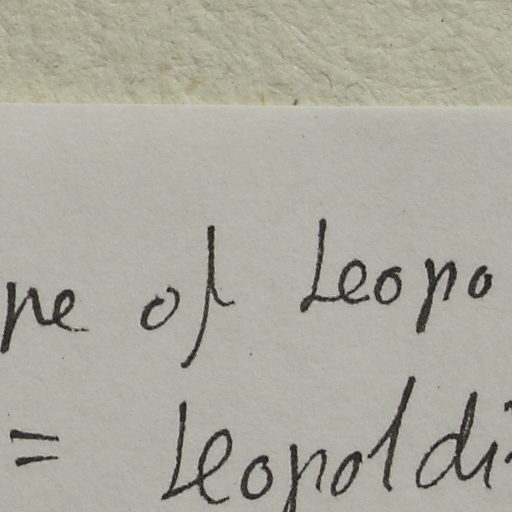 pe of Leopo
= Leopoldi